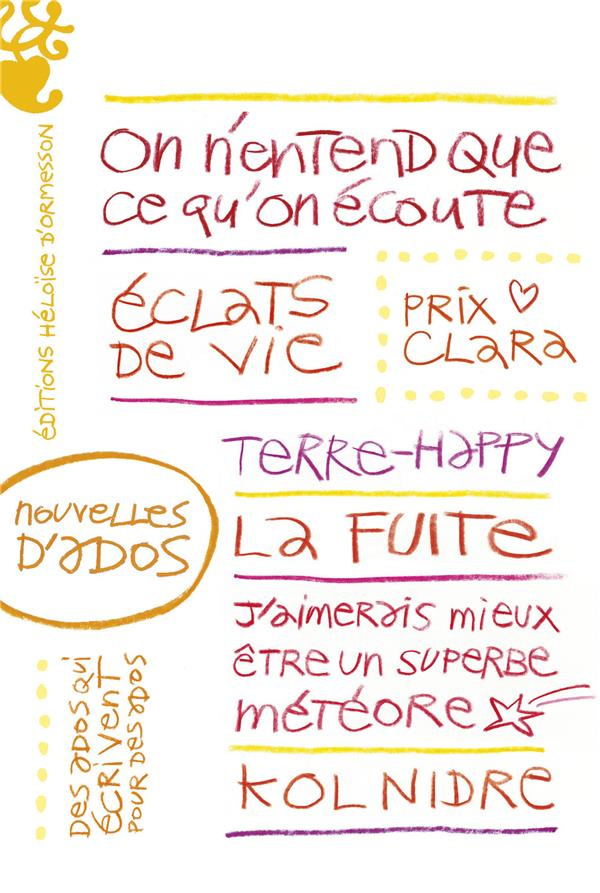 ÉDITIONS HÉLOÏSE D'ORMESSON
On n'entend que
ce qu'on écoute
ÉCLATS
DE VIE
PRIX
CLARA
TERRE-HAPPY
nouvelles
D'ADOS
LA FUITE
J'aimerais mieux
être un superbe
météore
KOL NIDRE
DES ADOS QUI
ÉCRIVENT
POUR DES ADOS